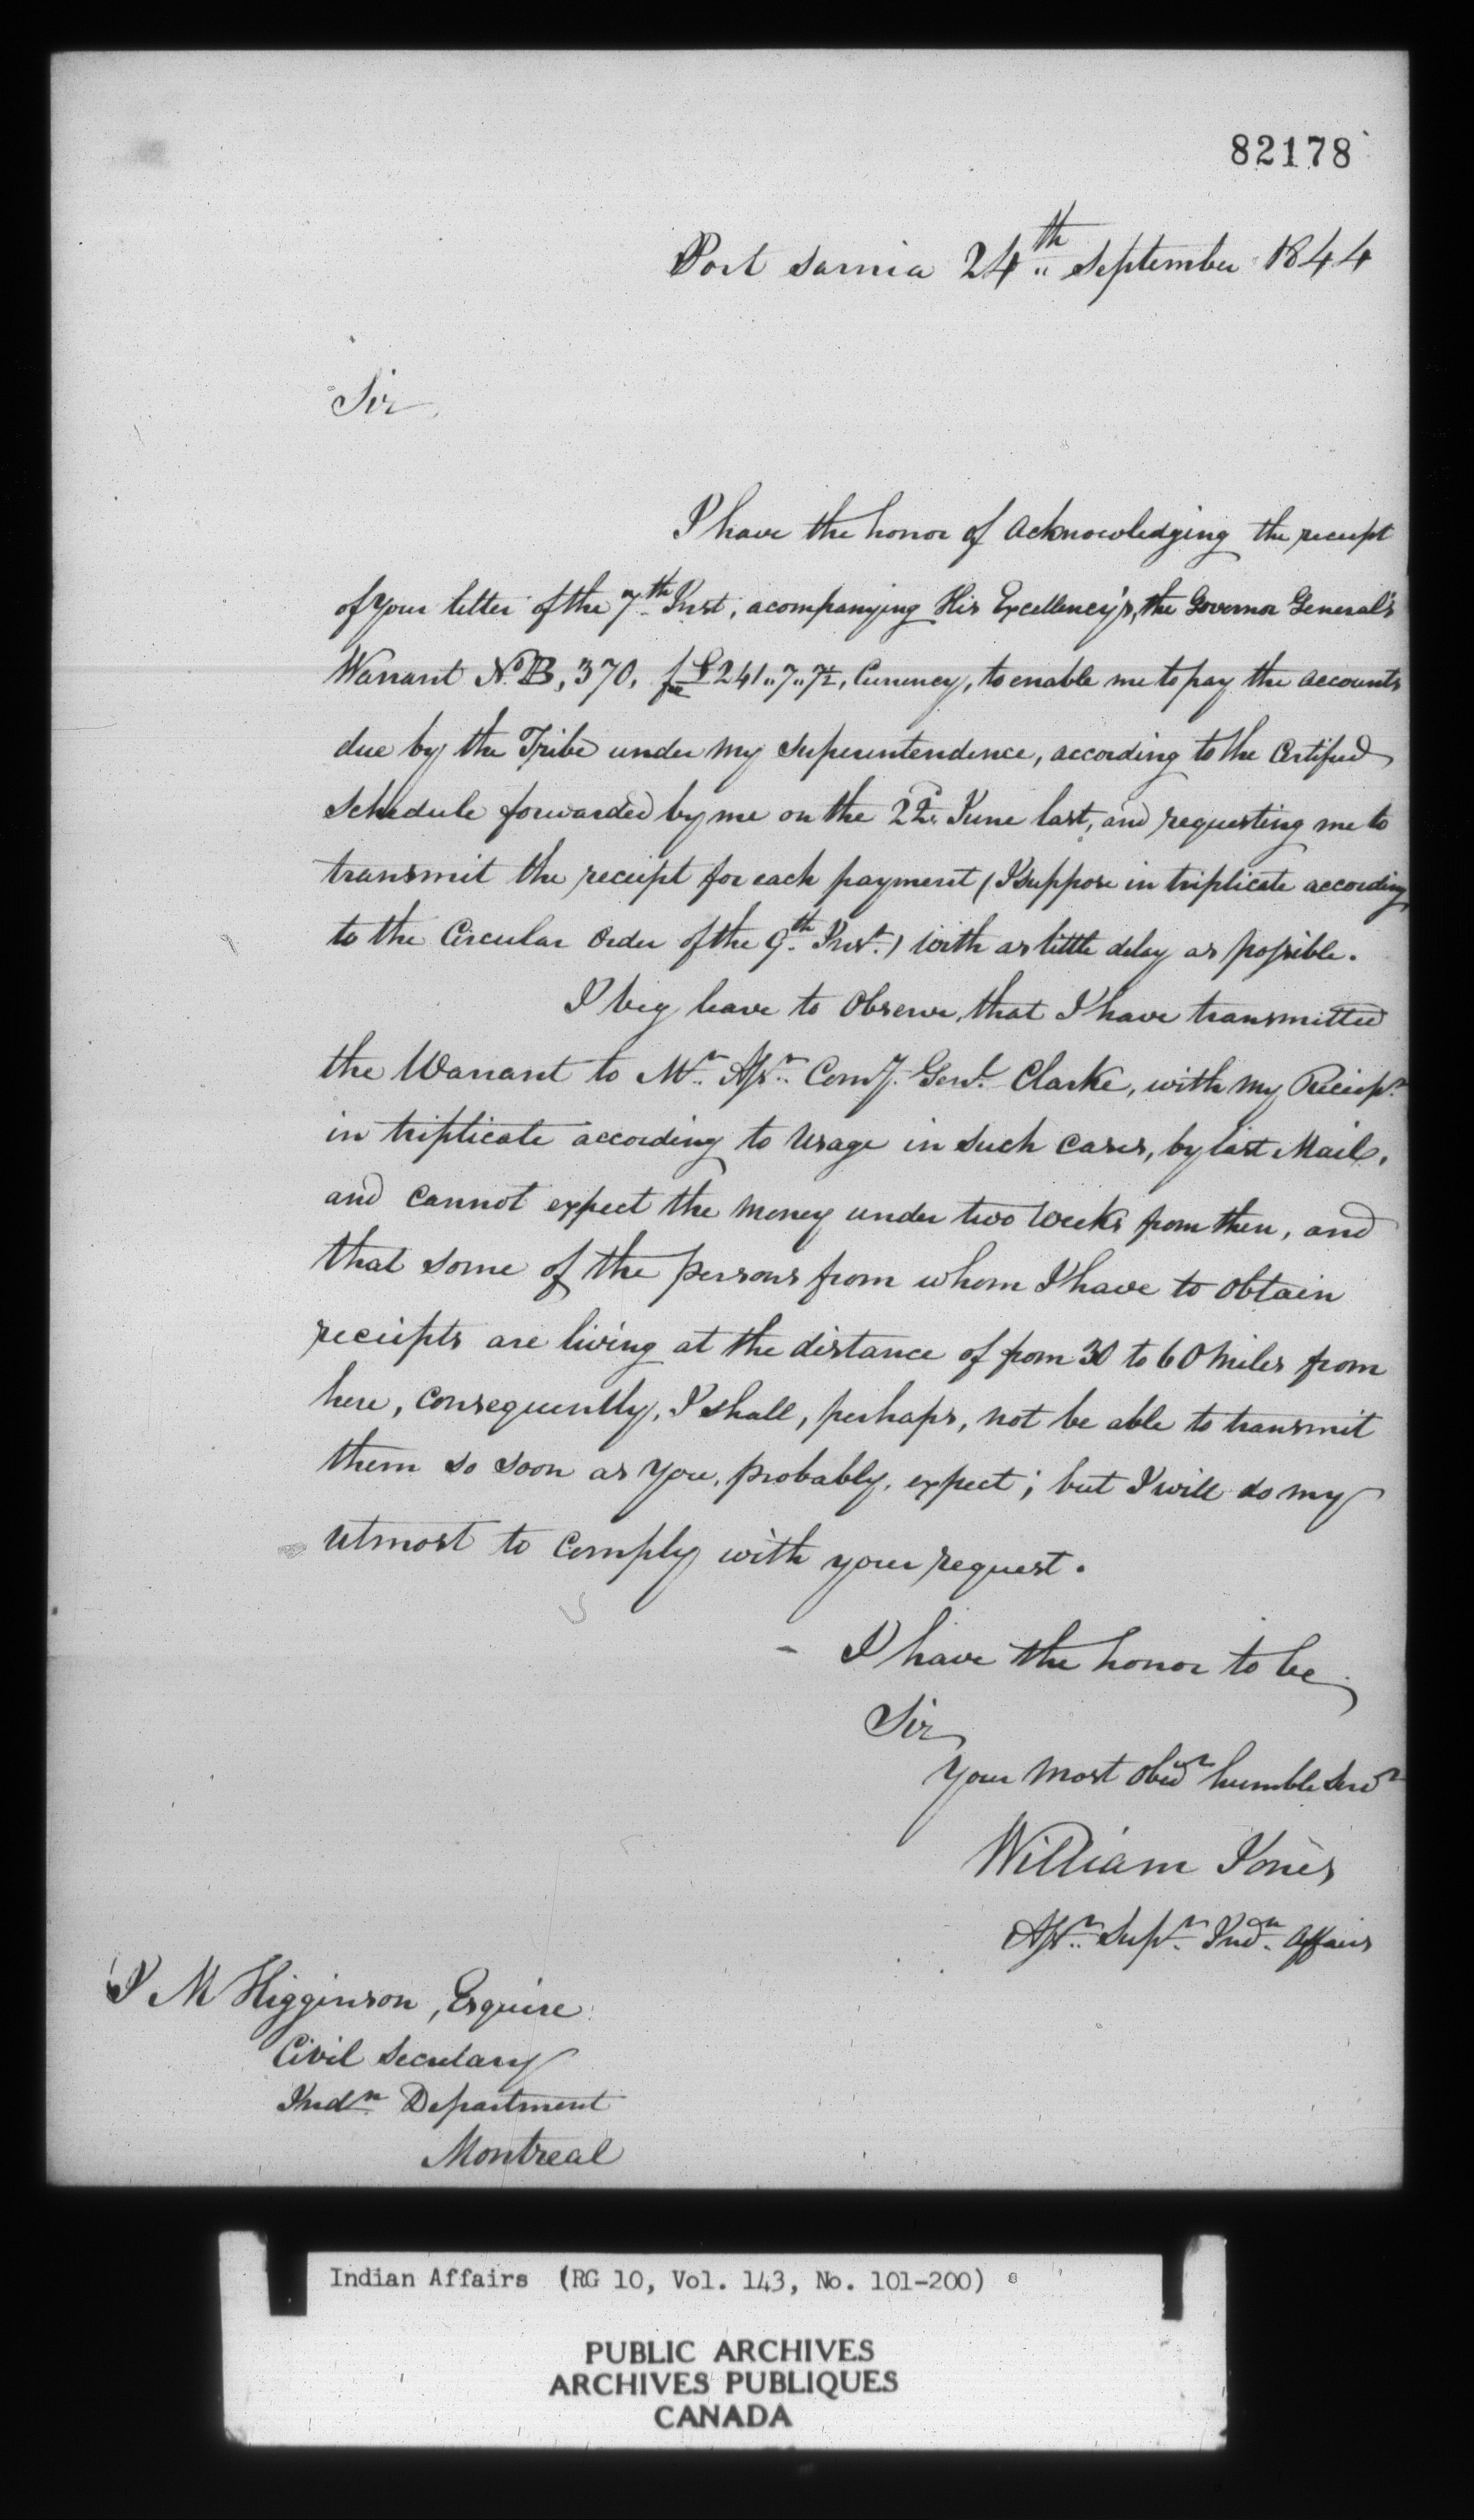 82178
Port Sarnia 24th September 1844
Sir
I have the honor of Acknowledging the receipt
of your letter of the 7th Inst, acompanying His Excellency's, the Governor General's
Warrant No B, 370, for £241..7..7½, Currency, to enable me to pay the accounts
due by the Tribe under my Superintendence, according to the Certified
Schedule forwarded by me on the 22d June last, and requesting me to
transmit the receipt for each payment (I suppose in triplicate according
to the Circular Order of the 9th Inst.) with as little delay as possible.
I beg leave to Observe, that I have transmitted
the Warrant to Mr Asst Comy. Genl. Clarke, with my Receipt
in triplicate according to Usage in Such Cases, by last Mail,
and Cannot expect the Money under two Weeks from then, and
that some of the persons from whom I have to obtain
receipts are living at the distance of from 30 to 60 Miles from
here, Consequently, I shall, perhaps, not be able to transmit
them so soon as you, probably, expect; but I will do my
Utmost to Comply with your request.
I have the honor to be
Sir
Your Most Obedt humble Servt
William Jones
Asst Supt Indn Affairs
J M Higginson, Esquire
Civil Secretary
Indn Department
Montreal
Indian Affairs (RG 10, Vol. 143, No. 101-200)
PUBLIC ARCHIVES
ARCHIVES PUBLIQUES
CANADA